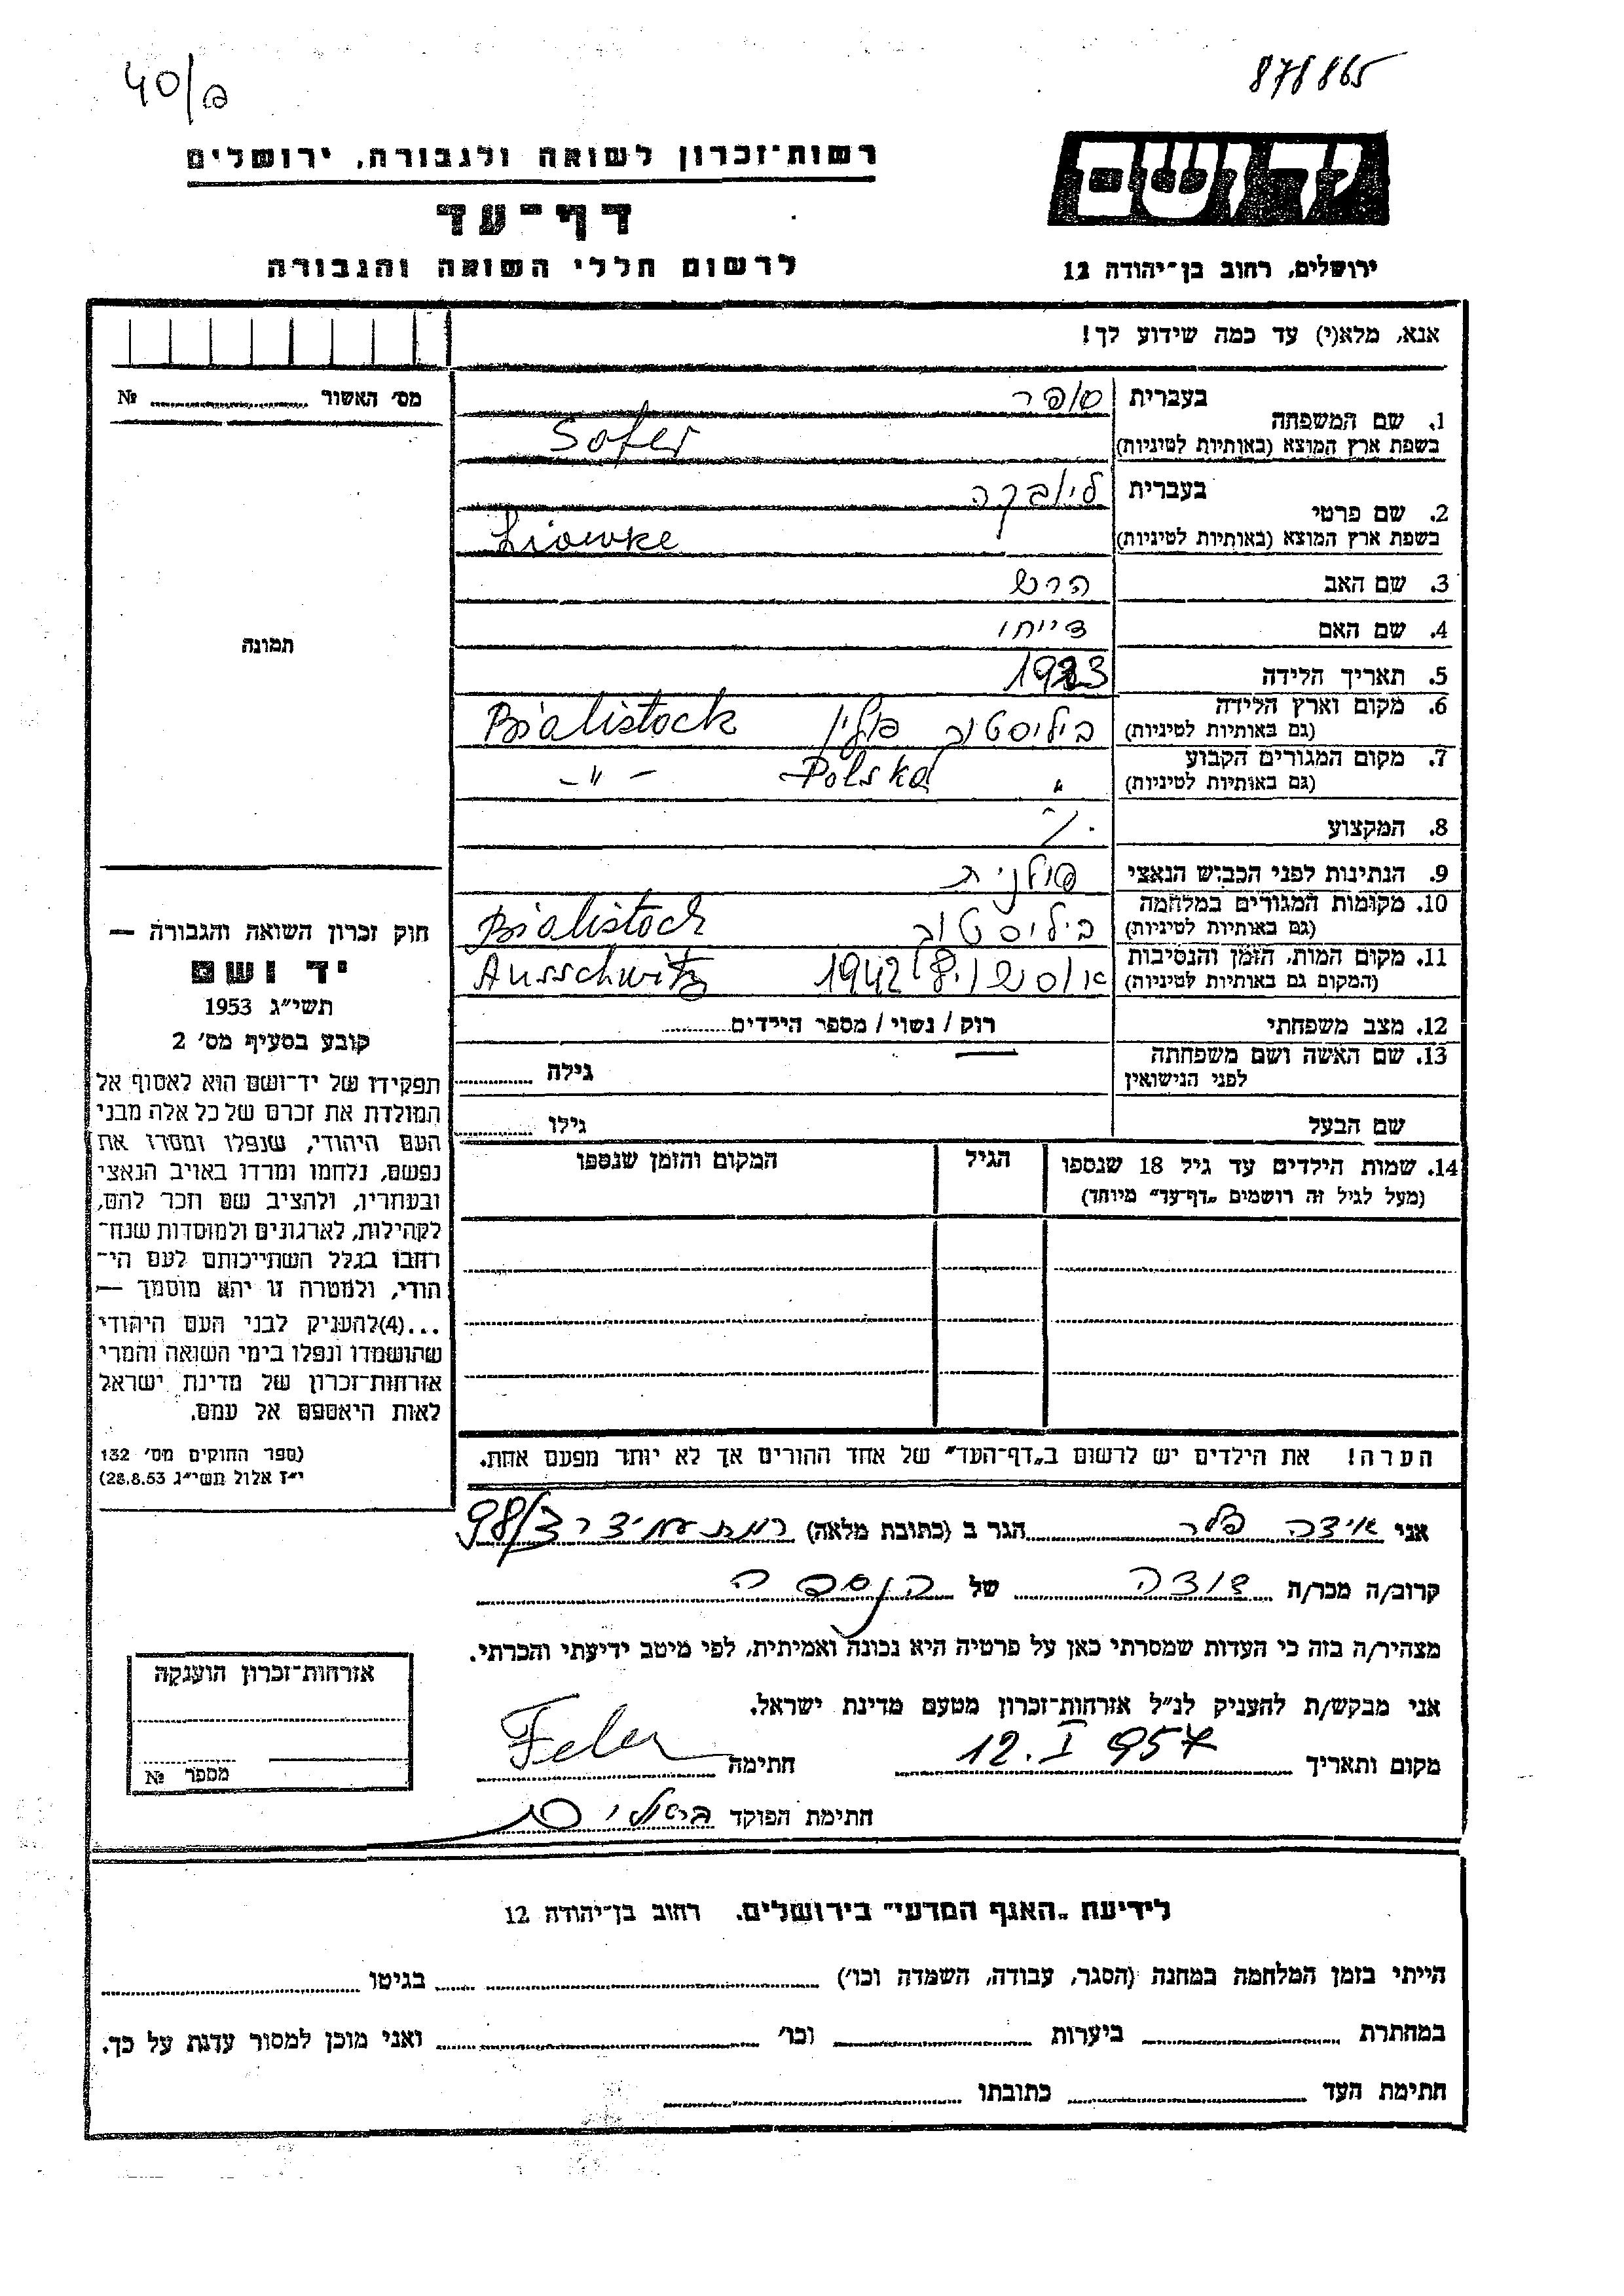 40/a
878865
רשות־זכרון לשואה ולגבורה, ירושלים
דף־עד
לרשום חללי השואה והגבורה
ידושם
ירושלים, רחוב בן־יהודה 12
אנא, מלא(י) עד כמה שידוע לך!
מס׳ האשור № 
1. שם המשפחה
בעברית סופר
בשפת ארץ המוצא (באותיות לטיניות) Sofer
2. שם פרטי
בעברית ליובקה
בשפת ארץ המוצא (באותיות לטיניות) Liowke
3. שם האב הרש
4. שם האם
5. תאריך הלידה 1923
6. מקום וארץ הלידה
(גם באותיות לטיניות) ביליסטוק פולין Bialistock
7. מקום המגורים הקבוע
(גם באותיות לטיניות) " Polska - " -
8. המקצוע
9. הנתינות לפני הכביש הנאצי פולנית
10. מקומות המגורים במלחמה
(גם באותיות לטיניות) ביליסטוק Bialistock
11. מקום המות, הזמן והנסיבות
(המקום גם באותיות לטיניות) אוסשויץ 1942 Ausschwitz
12. מצב משפחתי רוק / נשוי / מספר הילדים
13. שם האשה ושם משפחתה
לפני הנישואין גילה
שם הבעל גילו
14. שמות הילדים עד גיל 18 שנספו
(מעל לגיל זה רושמים „דף־עד” מיוחד)
הגיל
המקום והזמן שנספו
הערה! את הילדים יש לרשום ב„דף־העד” של אחד ההורים אך לא יותר מפעם אחת.
תמונה
חוק זכרון השואה והגבורה —
יד ושם
תשי״ג 1953
קובע בסעיף מס׳ 2
תפקידו של יד־ושם הוא לאסוף אל
המולדת את זכרם של כל אלה מבני
העם היהודי, שנפלו ומסרו את
נפשם, נלחמו ומרדו באויב הנאצי
ובעוזריו, ולהציב שם וזכר להם,
לקהילות, לארגונים ולמוסדות שנח־
רחבו בגלל השתייכותם לעם הי־
הודי, ולמטרה זו יהא מוסמך —
...(4)להעניק לבני העם היהודי
שהושמדו ונפלו בימי השואה והמרי
אזרחות־זכרון של מדינת ישראל
לאות היאספם אל עמם.
(ספר החוקים מס׳ 132
י״ז אלול תשי״ג 28.8.53)
אני אידה פלר הגר ב (כתובת מלאה) רמת עמידר 98/3
קרוב/ה מכר/ה דודה של הנספה
מצהיר/ה בזה כי העדות שמסרתי כאן על פרטיה היא נכונה ואמיתית, לפי מיטב ידיעתי והכרתי.
אני מבקש/ת להעניק לנ״ל אזרחות־זכרון מטעם מדינת ישראל.
מקום ותאריך 12.I 957 חתימה Feler
חתימת הפוקד
אזרחות־זכרון הוענקה
מספר №
לידיעת „האגף המדעי” בירושלים. רחוב בן־יהודה 12
הייתי בזמן המלחמה במחנה (הסגר, עבודה, השמדה וכו׳) בגיטו
במחתרת ביערות וכו׳ ואני מוכן למסור עדות על כך.
חתימת העד כתובתו